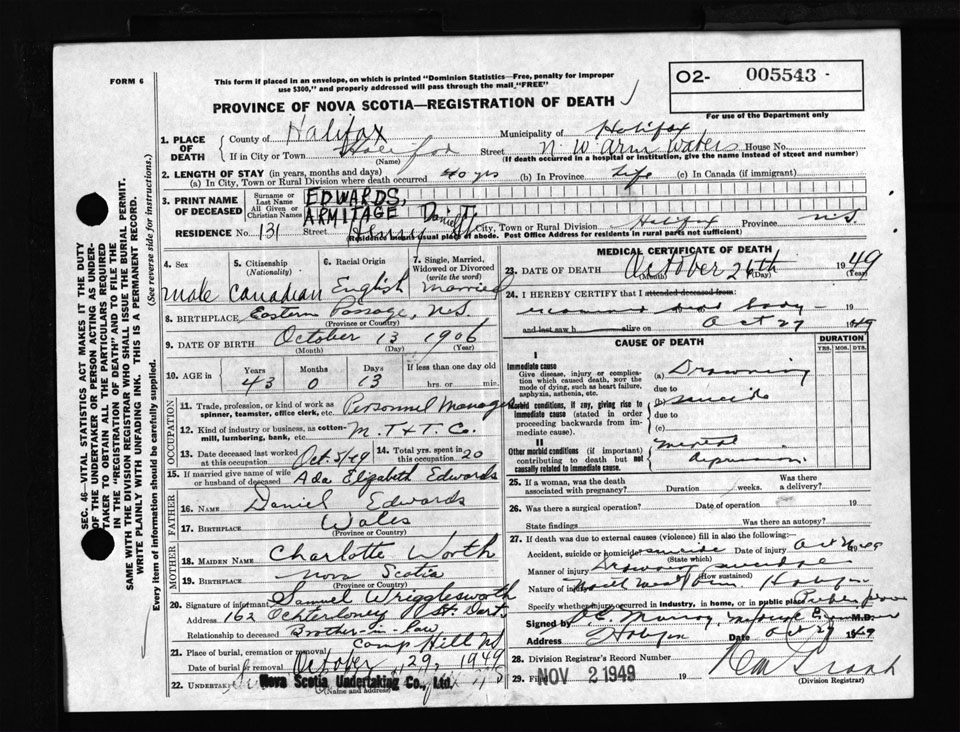 FORM 6
This form if placed in an envelope, on which is printed "Dominion Statistics—Free, penalty for improper
use $300," and properly addressed will pass through the mail "FREE"
O2- 005543
For use of the Department only
PROVINCE OF NOVA SCOTIA—REGISTRATION OF DEATH
SEC. 46—VITAL STATISTICS ACT MAKES IT THE DUTY
OF THE UNDERTAKER OR PERSON ACTING AS UNDER-
TAKER TO OBTAIN ALL THE PARTICULARS REQUIRED
IN THE "REGISTRATION OF DEATH" AND TO FILE THE
SAME WITH THE DIVISION REGISTRAR WHO SHALL ISSUE THE BURIAL PERMIT.
WRITE PLAINLY WITH UNFADING INK. THIS IS A PERMANENT RECORD.
Every item of information should be carefully supplied. (See reverse side for instructions.)
1. PLACE OF DEATH
County of Halifax Municipality of Halifax
If in City or Town Halifax Street N. W. Arm Waters House No.
(Name) (If death occurred in a hospital or institution, give the name instead of street and number)
2. LENGTH OF STAY (in years, months and days)
(a) In City, Town or Rural Division where death occurred 40 yrs (b) In Province Life (c) In Canada (if immigrant)
3. PRINT NAME OF DECEASED
Surname or Last Name EDWARDS,
All Given or Christian Names ARMITAGE Daniel T.
RESIDENCE No. 131 Street Henry St City, Town or Rural Division Halifax Province N.S.
Residence means usual place of abode. Post Office Address for residents in rural parts not sufficient)
4. Sex
male
5. Citizenship (Nationality)
Canadian
6. Racial Origin
English
7. Single, Married, Widowed or Divorced (write the word)
married
8. BIRTHPLACE Eastern Passage, N.S.
(Province or Country)
9. DATE OF BIRTH October 13 1906
(Month) (Day) (Year)
10. AGE in Years 43 Months 0 Days 13 If less than one day old hrs. or min.
OCCUPATION
11. Trade, profession, or kind of work as spinner, teamster, office clerk, etc. Personnel Manager
12. Kind of industry or business, as cotton-mill, lumbering, bank, etc. M. T. & T. Co.
13. Date deceased last worked at this occupation Oct. 5/49
14. Total yrs. spent in this occupation 20
15. If married give name of wife or husband of deceased Ada Elizabeth Edwards
FATHER
16. Name Daniel Edwards
17. Birthplace Wales
MOTHER
18. MAIDEN NAME Charlotte Worth
19. BIRTHPLACE Nova Scotia
(Province or Country)
20. Signature of informant Samuel Wrigglesworth
Address 162 Ochterloney St. Dart.
Relationship to deceased Brother-in-law
21. Place of burial, cremation or removal Camp Hill
Date of burial or removal October 29, 1949
22. UNDERTAKER Nova Scotia Undertaking Co., Ltd.
(Name and address)
MEDICAL CERTIFICATE OF DEATH
23. DATE OF DEATH October 26th 1949
(Month) (Day) (Year)
24. I HEREBY CERTIFY that I attended deceased from:
dead body 19
and last saw h alive on Oct 27 1949
CAUSE OF DEATH
DURATION
YRS. MOS. DYS.
I
Immediate cause
Give disease, injury or complication which caused death, NOT the mode of dying, such as heart failure, asphyxia, asthenia, etc.
(a) Drowning
due to
(b) suicide
due to
(c)
Morbid conditions, if any, giving rise to immediate cause (stated in order proceeding backwards from immediate cause).
II
Other morbid conditions (if important) contributing to death but not causally related to immediate cause.
mental depression
25. If a woman, was the death associated with pregnancy? Duration weeks. Was there a delivery?
26. Was there a surgical operation? Date of operation 19
State findings Was there an autopsy?
27. If death was due to external causes (violence) fill in also the following:
Accident, suicide or homicide suicide Date of injury Oct 26 1949
(State which)
Manner of injury Drowning
(How sustained)
Nature of injury North West Arm Halifax
Specify whether injury occurred in industry, in home, or in public place Public place
Signed by Murray, Medical Examiner M.D.
Address Halifax Date Oct 27 1949
28. Division Registrar's Record Number
29. Filed NOV 2 1949 19
(Division Registrar)